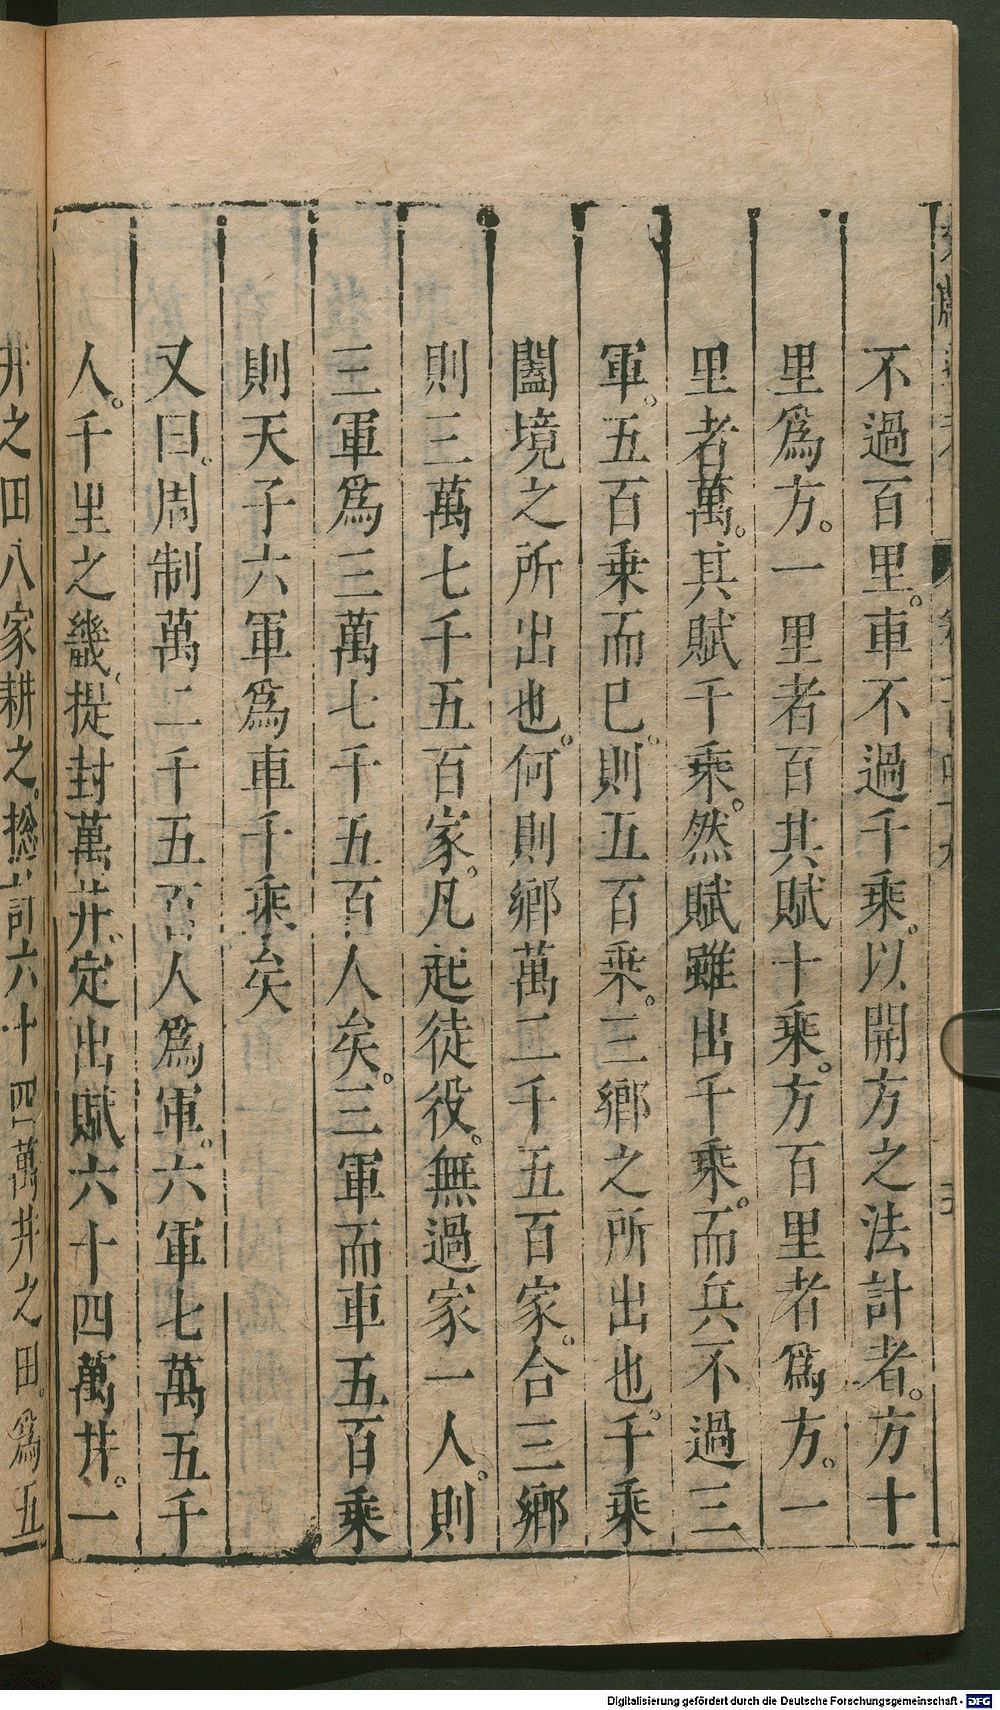 不過百里。車不過千乘。以開方之法計者。方十
里爲方。一里者百其賦十乘。方百里者爲方。一
里者萬。其賦千乘。然賦雖出千乘。而兵不過三
軍。五百乘而已。則五百乘。三鄉之所出也。千乘
闔境之所出也。何則鄉萬二千五百家。合三鄉
則三萬七千五百家。凡起徒役。無過家一人。則
三軍爲三萬七千五百人矣。三軍而車五百乘
則天子六軍爲車千乘矣
又曰。周制萬二千五百人爲軍。六軍七萬五千
人。千里之畿。提封萬井。定出賦六十四萬井。一
井之田八家耕之。捴計六十四萬井之田。爲五
Digitalisierung gefördert durch die Deutsche Forschungsgemeinschaft - DFG